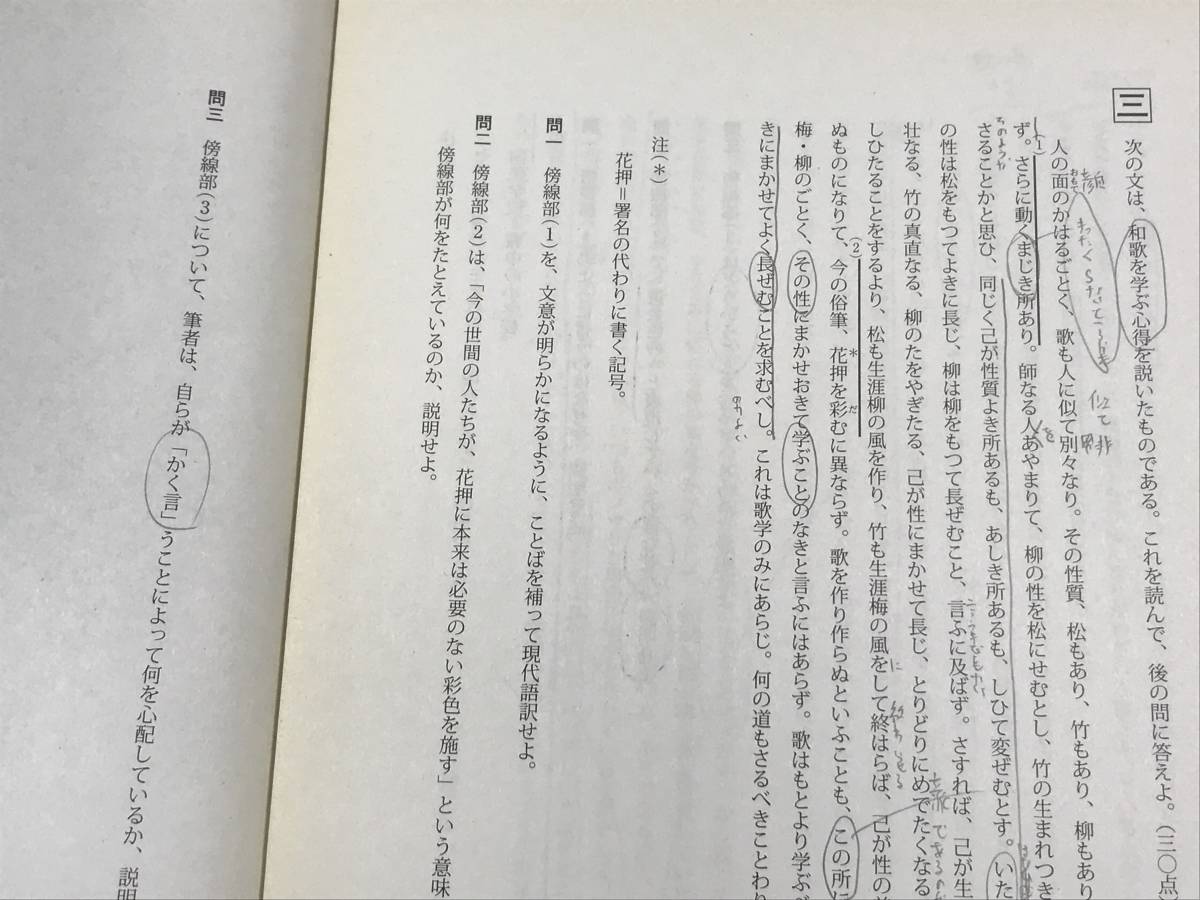 三
次の文は、和歌を学ぶ心得を説いたものである。これを読んで、後の問に答えよ。(三〇点)
人の面のかはるごとく、歌も人に似て別々なり。その性質、松もあり、竹もあり、柳もあり
ず。さらに動くまじき所あり。師なる人あやまりて、柳の性を松にせむとし、竹の生まれつき
さることかと思ひ、同じく己が性質よき所あるも、あしき所あるも、しひて変ぜむとす。いた
の性は松をもつてよきに長じ、柳は柳をもつて長ぜむこと、言ふに及ばず。さすれば、己が生
壮なる、竹の真直なる、柳のたをやぎたる、己が性にまかせて長じ、とりどりにめでたくなる
しひたることをするより、松も生涯柳の風を作り、竹も生涯梅の風をして終はらば、己が性の
ぬものになりて、今の俗筆、花押を彩むに異ならず。歌を作り作らぬといふことも、この所に
梅・柳のごとく、その性にまかせおきて学ぶことのなきと言ふにはあらず。歌はもとより学ぶべ
きにまかせてよく長ぜむことを求むべし。これは歌学のみにあらじ。何の道もさるべきことわり
注(*)
花押=署名の代わりに書く記号。
問一 傍線部(1)を、文意が明らかになるように、ことばを補って現代語訳せよ。
問二 傍線部(2)は、「今の世間の人たちが、花押に本来は必要のない彩色を施す」という意味
傍線部が何をたとえているのか、説明せよ。
問三 傍線部(3)について、筆者は、自らが「かく言」うことによって何を心配しているか、説明
(1)
(2)
*
だ
おもて
顔
似て
非